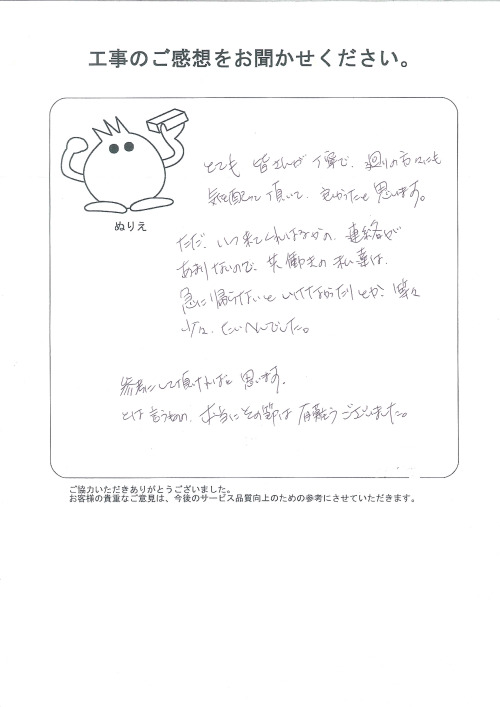 工事のご感想をお聞かせください。
ぬりえ
とても 皆さんが 丁寧で、廻りの方々にも
気を配って頂いて、良かったと思います。
ただ、いつ来てくれるかの、連絡が
あまりないので、共働きの私達は、
急に帰れないと いけなかったりとか、等々
少々、たいへんでした。
参考にして頂ければと 思います。
とは言うものの、本当にその節は 有難うございました。
ご協力いただきありがとうございました。
お客様の貴重なご意見は、今後のサービス品質向上のための参考にさせていただきます。